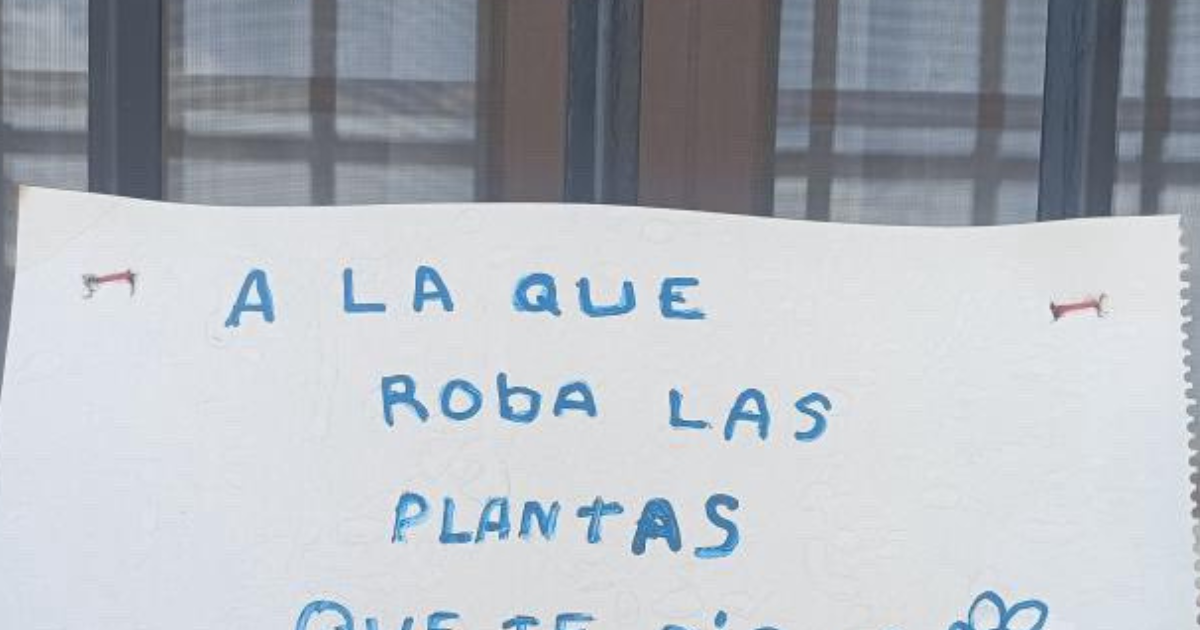 A LA QUE
RObA LAS
PLANtAS
QUE TE